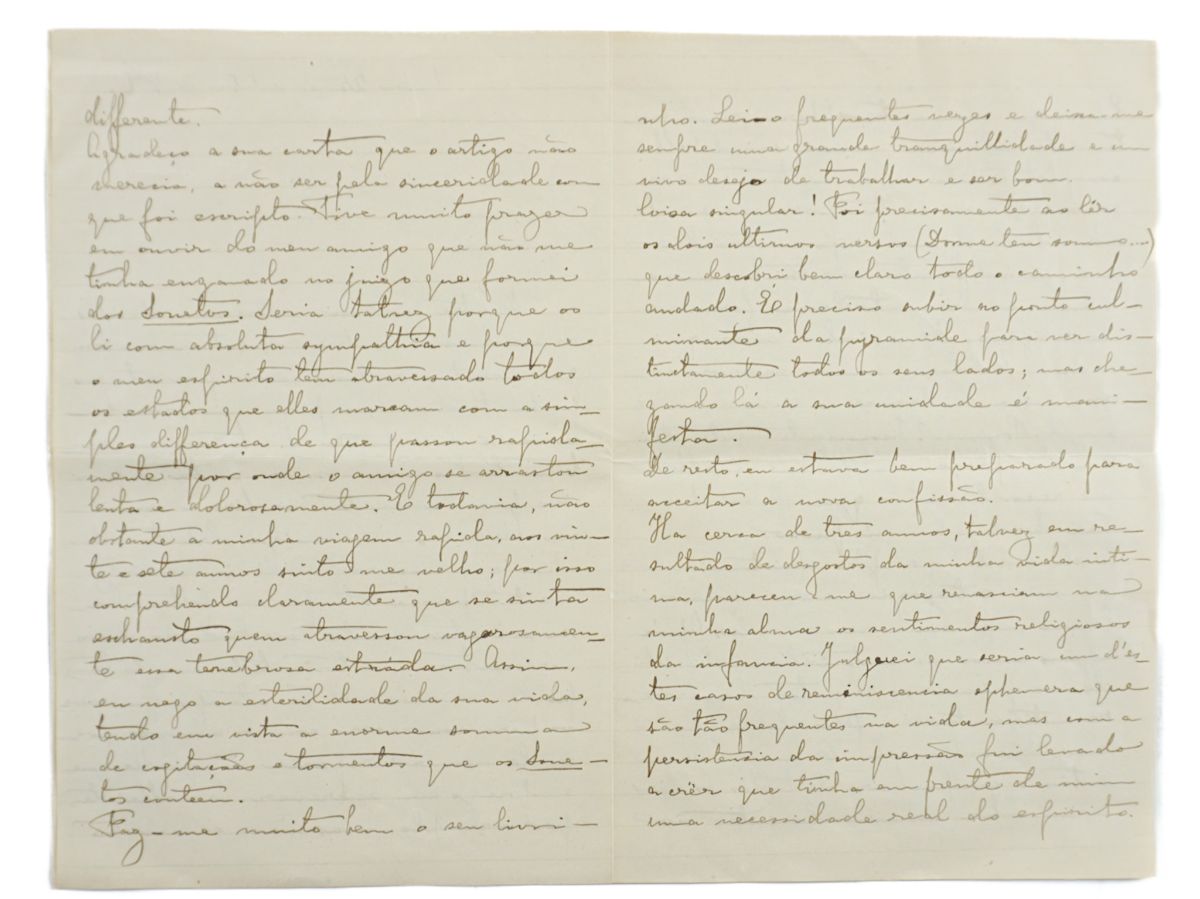 differente.
Agradeço a sua carta que o artigo não
merecia, a não ser pela sinceridade com
que foi escripto. Tive muito prazer
em ouvir do meu amigo que não me
tinha enganado no juizo que formei
dos Sonetos. Seria talvez porque os
li com absoluta sympathia e porque
o meu espirito tem atravessado todos
os estados que elles marcam com a sim-
ples differença de que passou rapida-
mente por onde o amigo se arrastou
lenta e dolorosamente. E todavia, não
obstante a minha viagem rapida, aos vin-
te e sete annos sinto-me velho; por isso
comprehendo claramente que se sinta
exhausto quem atravessou vagarosamen-
te essa tenebrosa estrada. Assim,
eu nego a esterilidade da sua vida,
tendo em vista a enorme somma
de cogitações e tormentos que os Sone-
tos conteem.
Faz-me muito bem o seu livri-
nho. Leio-o frequentes vezes e deixa-me
sempre uma grande tranquillidade e um
vivo desejo de trabalhar e ser bom.
Coisa singular! Foi precisamente ao lêr
os dois ultimos versos (Dorme teu somno...)
que descobri bem claro todo o caminho
andado. É preciso subir ao ponto cul-
minante da pyramide para ver dis-
tinctamente todos os seus lados; mas che-
gando lá a sua unidade é mani-
festa.
De resto, eu estava bem preparado para
acceitar a nova confissão.
Ha cerca de tres annos, talvez em re-
sultado de desgostos da minha vida inti-
ma, pareceu-me que renasciam na
minha alma os sentimentos religiosos
da infancia. Julguei que seria um d'es-
tes casos de reminiscencia ephemera que
são tão frequentes na vida, mas com a
persistencia da impressão fui levado
a crêr que tinha em frente de mim
uma necessidade real do espirito.